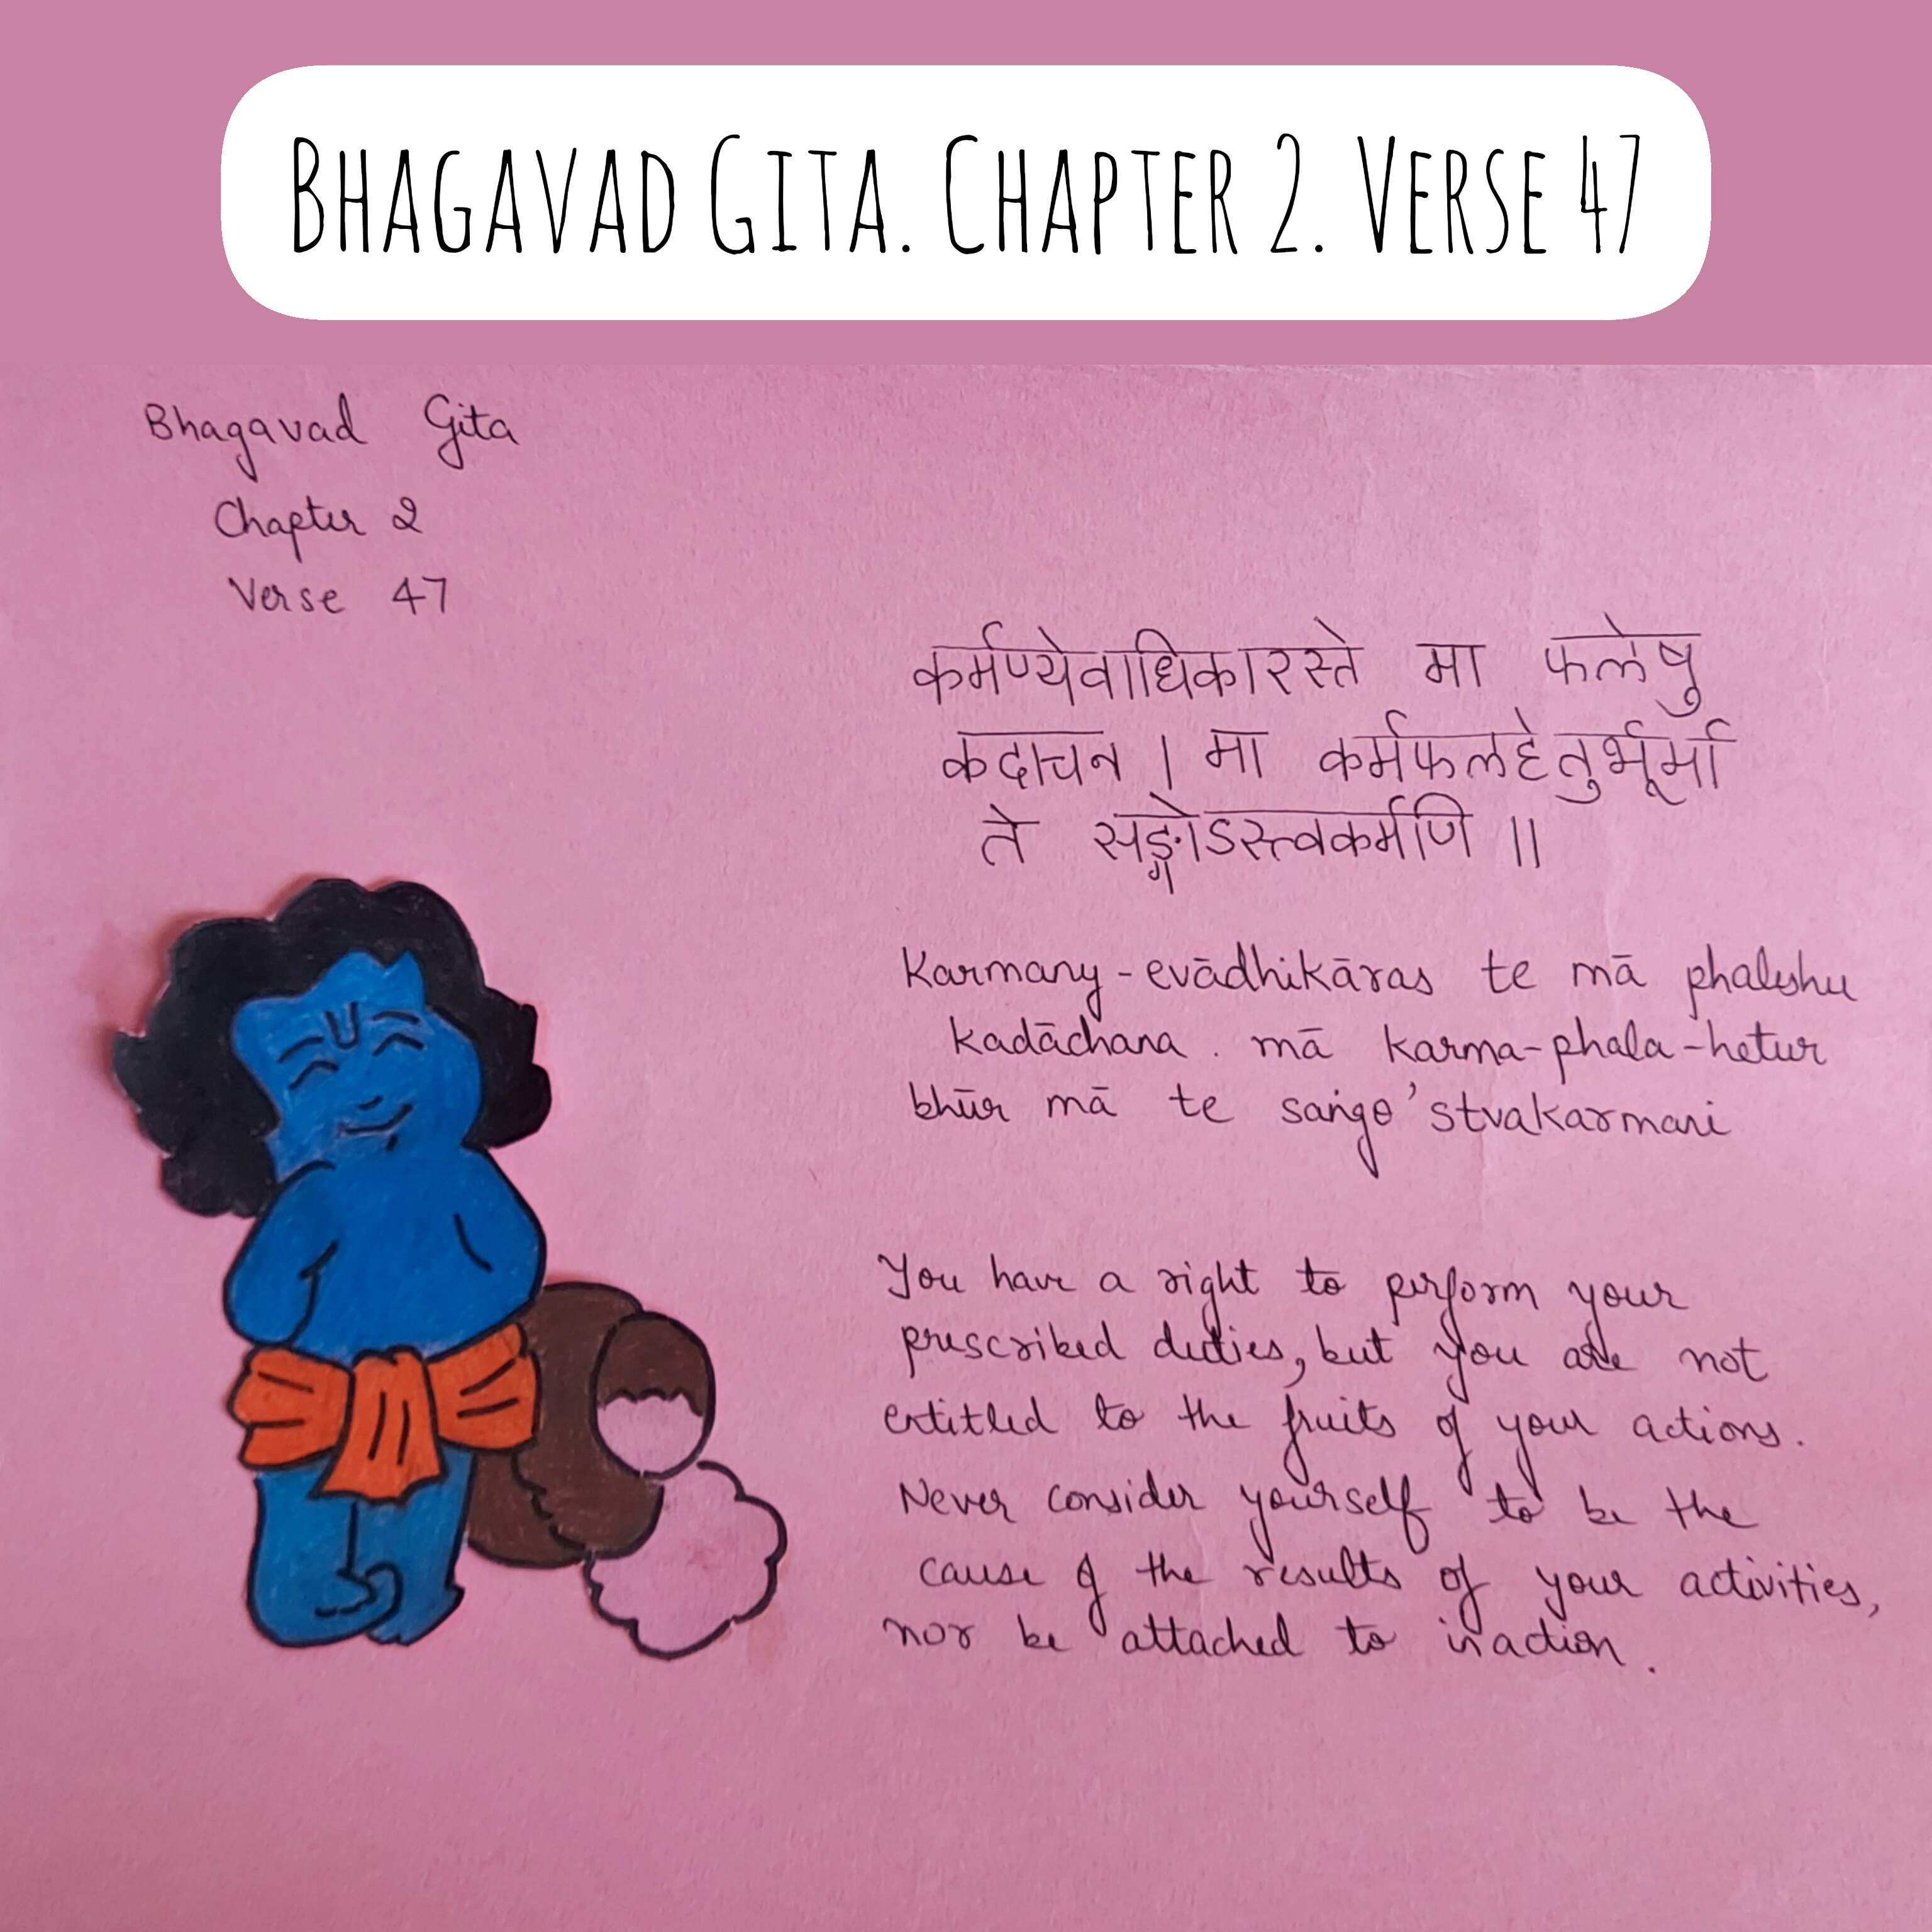 BHAGAVAD GITA. CHAPTER 2. VERSE 47
Bhagavad Gita
Chapter 2
Verse 47
कर्मण्येवाधिकारस्ते मा फलेषु
कदाचन । मा कर्मफलहेतुर्भूर्मा
ते सङ्गोऽस्त्वकर्मणि ॥
Karmany-evādhikāras te mā phaleshu
kadāchana. mā karma-phala-hetur
bhūr mā te saṅgo'stvakarmani
You have a right to perform your
prescribed duties, but you are not
entitled to the fruits of your actions.
Never consider yourself to be the
cause of the results of your activities,
nor be attached to inaction.